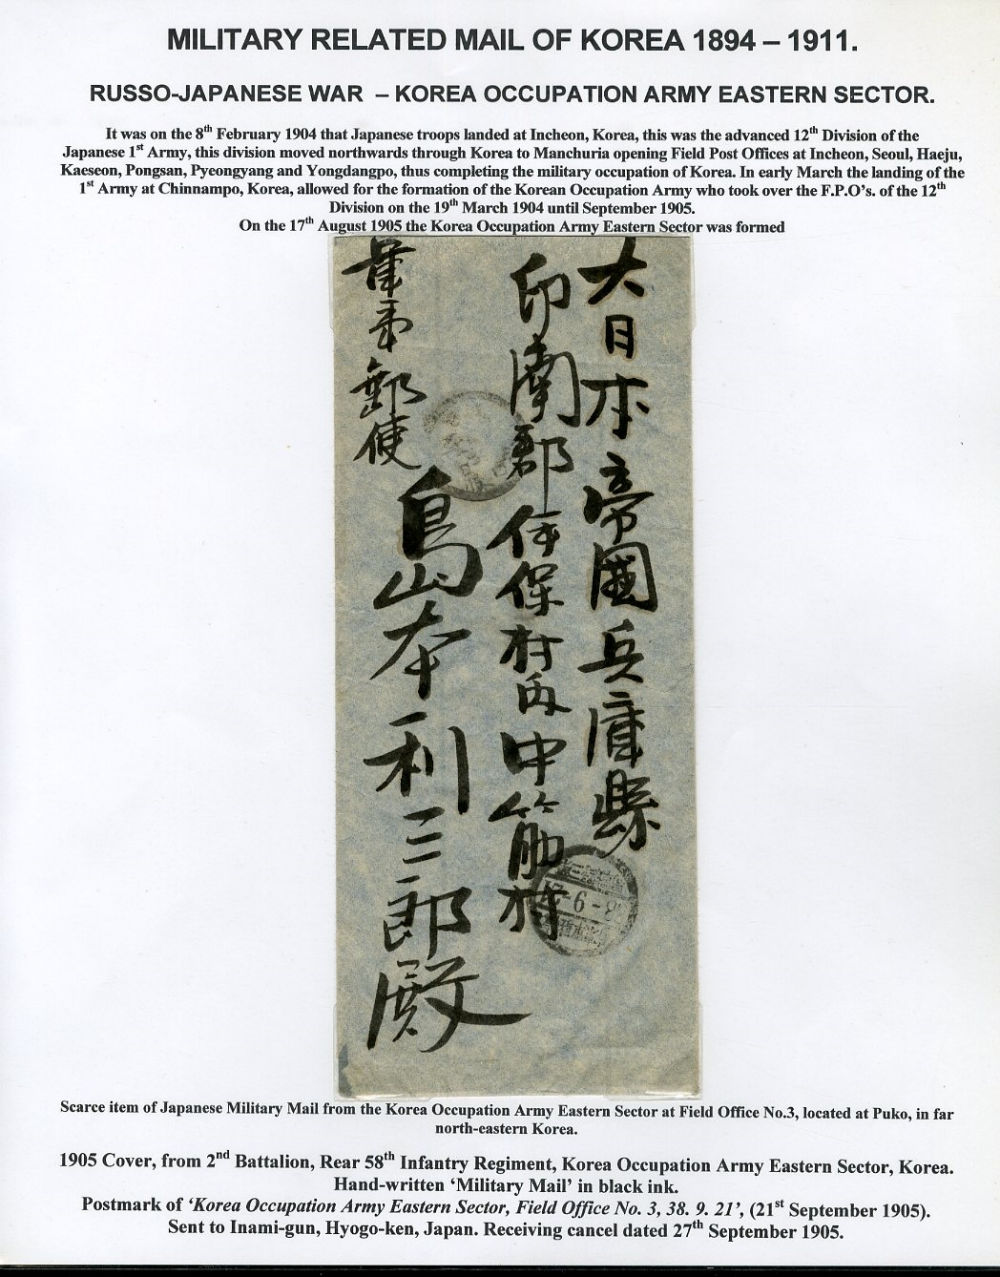 MILITARY RELATED MAIL OF KOREA 1894 – 1911.
RUSSO-JAPANESE WAR – KOREA OCCUPATION ARMY EASTERN SECTOR.
It was on the 8th February 1904 that Japanese troops landed at Incheon, Korea, this was the advanced 12th Division of the
Japanese 1st Army, this division moved northwards through Korea to Manchuria opening Field Post Offices at Incheon, Seoul, Haeju,
Kaeseon, Pongsan, Pyeongyang and Yongdangpo, thus completing the military occupation of Korea. In early March the landing of the
1st Army at Chinnampo, Korea, allowed for the formation of the Korean Occupation Army who took over the F.P.O's. of the 12th
Division on the 19th March 1904 until September 1905.
On the 17th August 1905 the Korea Occupation Army Eastern Sector was formed
大日本帝國兵庫縣
印南郡伊保村内中筋村
島本利三郎殿
軍事郵便
6-
Scarce item of Japanese Military Mail from the Korea Occupation Army Eastern Sector at Field Office No.3, located at Puko, in far
north-eastern Korea.
1905 Cover, from 2nd Battalion, Rear 58th Infantry Regiment, Korea Occupation Army Eastern Sector, Korea.
Hand-written ‘Military Mail’ in black ink.
Postmark of ‘Korea Occupation Army Eastern Sector, Field Office No. 3, 38. 9. 21’, (21st September 1905).
Sent to Inami-gun, Hyogo-ken, Japan. Receiving cancel dated 27th September 1905.